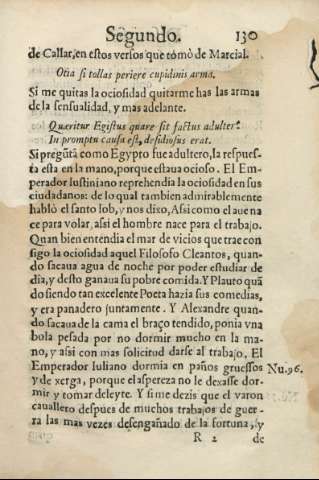 Segundo. 130
de Callar, en estos versos que tomò de Marcial.
Otia si tollas periere cupidinis arma.
Si me quitas la ociosidad quitarme has las armas
de la sensualidad, y mas adelante.
Quæritur Egistus quare sit factus adulter?
In promptu causa est, desidiosus erat.
Si pregũtã como Egypto fue adultero, la respues-
ta està en la mano, porque estaua ocioso. El Em-
perador Iustiniano reprehendia la ociosidad en sus
ciudadanos: de lo qual tambien admirablemente
habló el santo Iob, y nos dixo, Assi como el aue na
ce para volar, assi el hombre nace para el trabajo.
Quan bien entendia el mar de vicios que trae con
sigo la ociosidad aquel Filosofo Cleantos, quan-
do sacaua agua de noche por poder estudiar de
dia, y desto ganaua su pobre comida. Y Plauto quã
do siendo tan excelente Poeta hazia sus comedias,
y era panadero juntamente. Y Alexandre quan-
do sacaua de la cama el braço tendido, ponia vna
bola pesada por no dormir mucho en la ma-
no, y assi con mas solicitud darse al trabajo. El
Emperador Iuliano dormia en paños gruessos Nu.96.
y de xerga, porque el aspereza no le dexasse dor-
mir y tomar deleyte. Y si me dezis que el varon
cauallero despues de muchos trabajos de guer-
ra las mas vezes desengañado de la fortuna, y
R 2 de